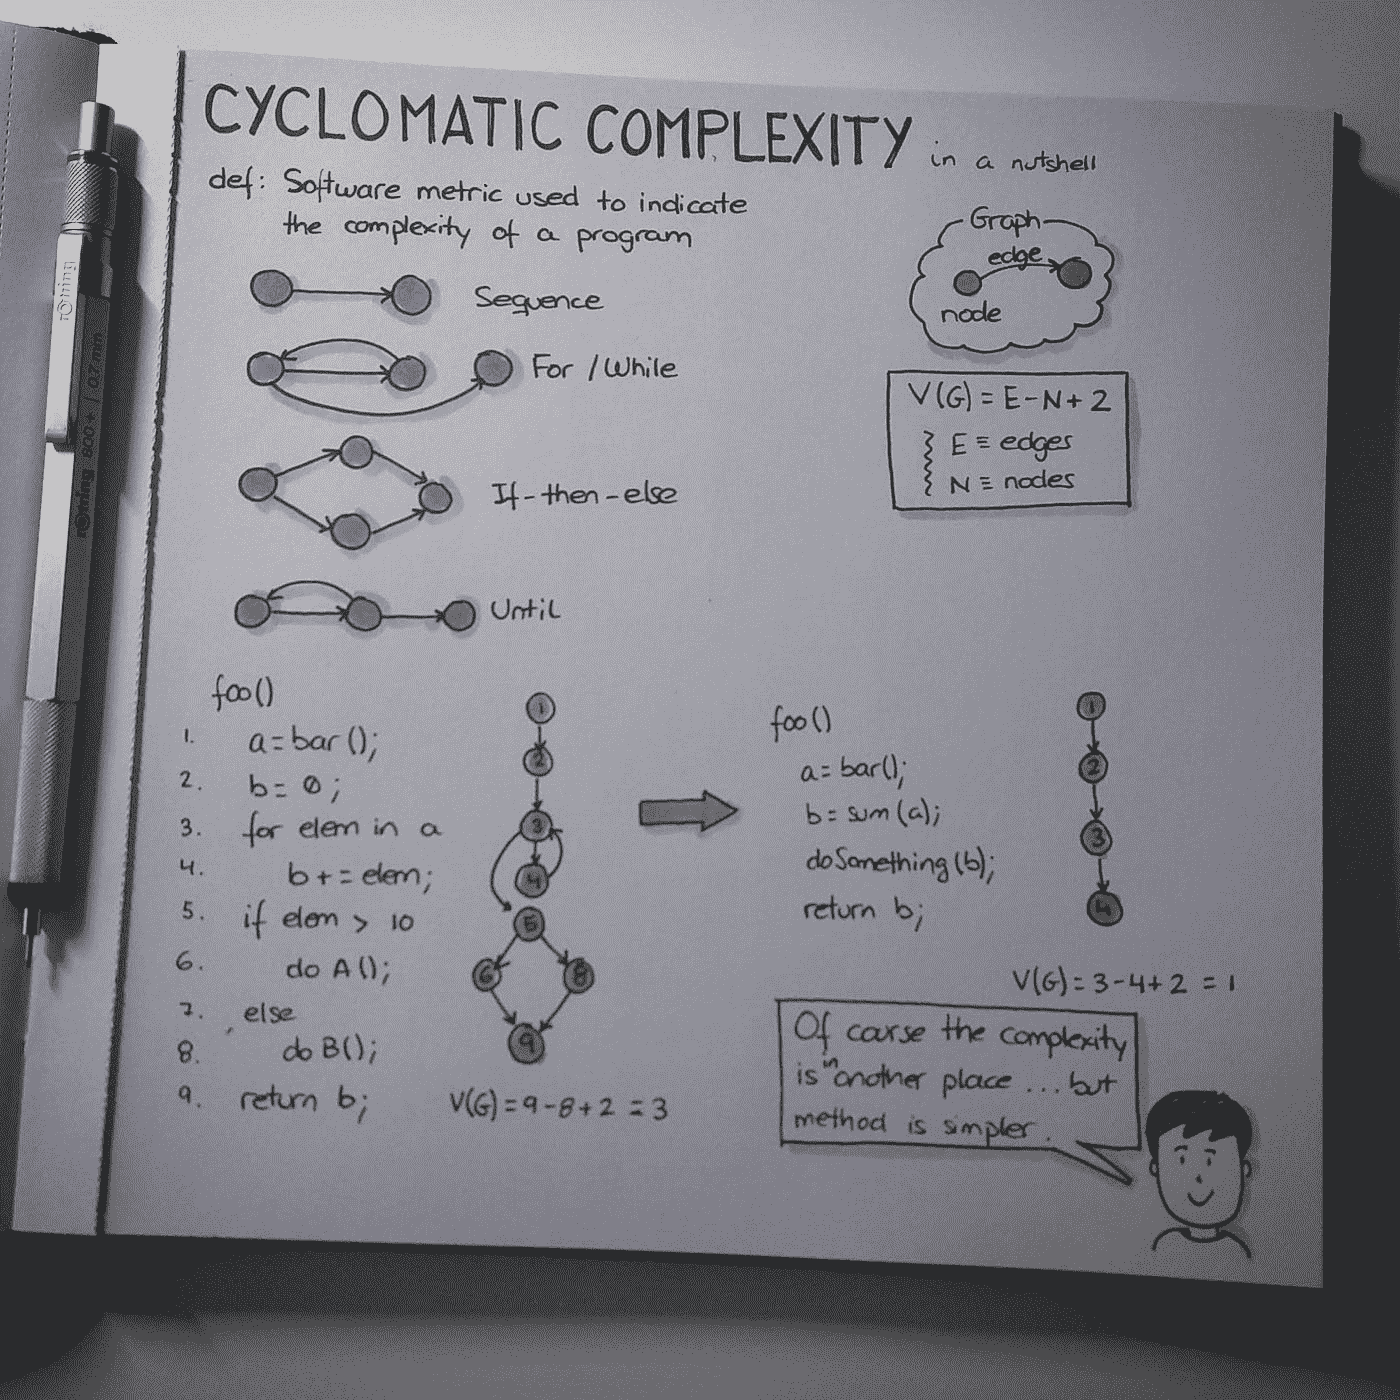 CYCLOMATIC COMPLEXITY in a nutshell
def: Software metric used to indicate
the complexity of a program
Graph
edge
node
Sequence
For / While
If-then-else
Until
V(G) = E-N+2
E ≡ edges
N ≡ nodes
foo()
1. a=bar();
2. b= 0;
3. for elem in a
4. b+=elem;
5. if elem > 10
6. do A();
7. else
8. do B();
9. return b;
1
2
3
4
5
6 8
9
V(G)=9-8+2 = 3
foo()
a=bar();
b=sum(a);
doSomething(b);
return b;
1
2
3
4
V(G)=3-4+2 = 1
Of course the complexity
is in another place ... but
method is simpler.
rOtring
rOtring 600+ | 0.7mm